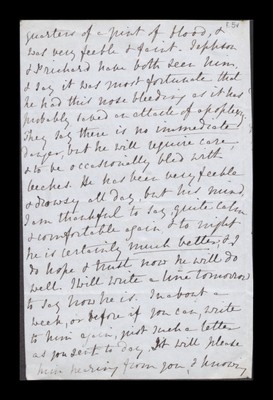 quarters of a pint of blood, &
was very feeble & faint. Jephson
& Prichard have both seen him,
& say it was most fortunate that
he had this nose bleeding as it has
probably saved an attack of apoplexy.
They say there is no immediate
danger, but he will require care
& to be occasionally bled with
leeches. He has been very feeble
& drowsy all day, but his mind
I am thankful to say, quite calm
& comfortable again & to night
he is certainly much better, & I
do hope & trust now he will do
well. I will write a line tomorrow
to say how he is. In about a
week, or before if you can, write
to him again, just such a letter
as you sent to day, It will please
him hearing from you, & knowing